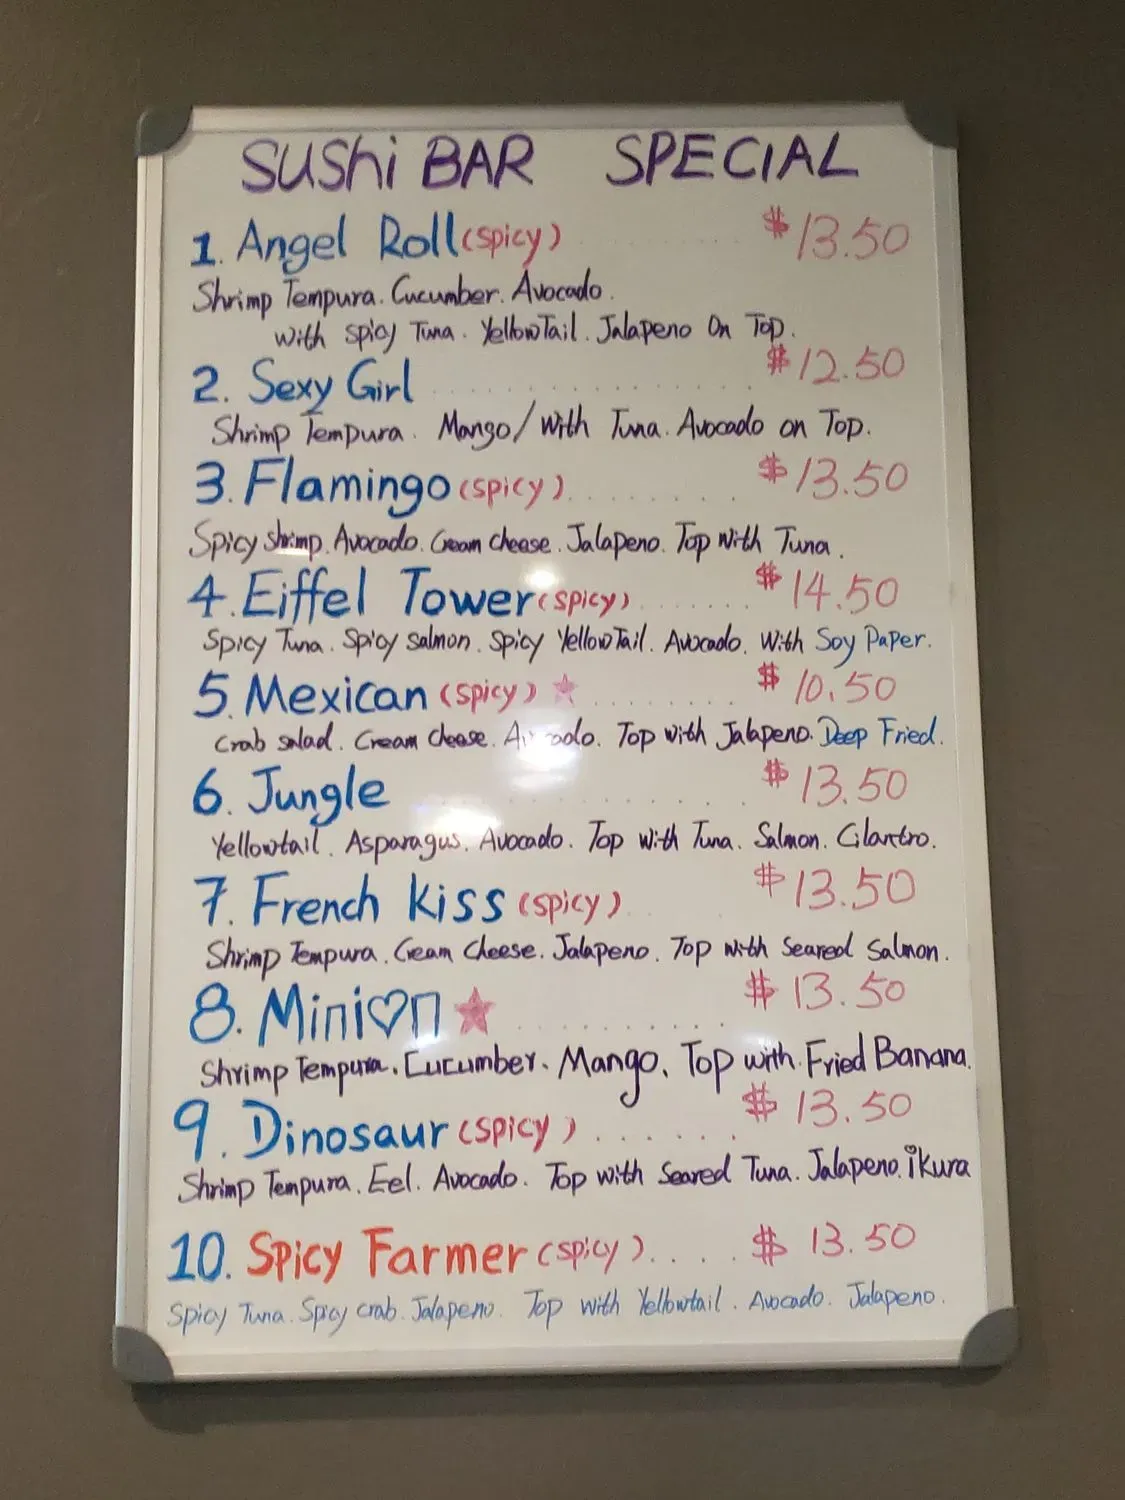 SUSHi BAR SPECIAL
1. Angel Roll (spicy) $13.50
Shrimp Tempura. Cucumber. Avocado.
with spicy Tuna. YellowTail. Jalapeno On Top.
2. Sexy Girl $12.50
Shrimp Tempura. Mango/With Tuna. Avocado on Top.
3. Flamingo (spicy) $13.50
Spicy shrimp. Avocado. Cream cheese. Jalapeno. Top with Tuna.
4. Eiffel Tower (spicy) $14.50
Spicy Tuna. Spicy salmon. Spicy YellowTail. Avocado. With Soy Paper.
5. Mexican (spicy) ★ $10.50
Crab salad. Cream cheese. Avocado. Top with Jalapeno. Deep Fried.
6. Jungle $13.50
Yellowtail. Asparagus. Avocado. Top with Tuna. Salmon. Cilantro.
7. French Kiss (spicy) $13.50
Shrimp Tempura. Cream Cheese. Jalapeno. Top with Seared Salmon.
8. Mini♡n ★ $13.50
Shrimp Tempura. Cucumber. Mango. Top with Fried Banana.
9. Dinosaur (spicy) $13.50
Shrimp Tempura. Eel. Avocado. Top with Seared Tuna. Jalapeno. iKura
10. Spicy Farmer (spicy) $13.50
Spicy Tuna. Spicy crab. Jalapeno. Top with Yellowtail. Avocado. Jalapeno.